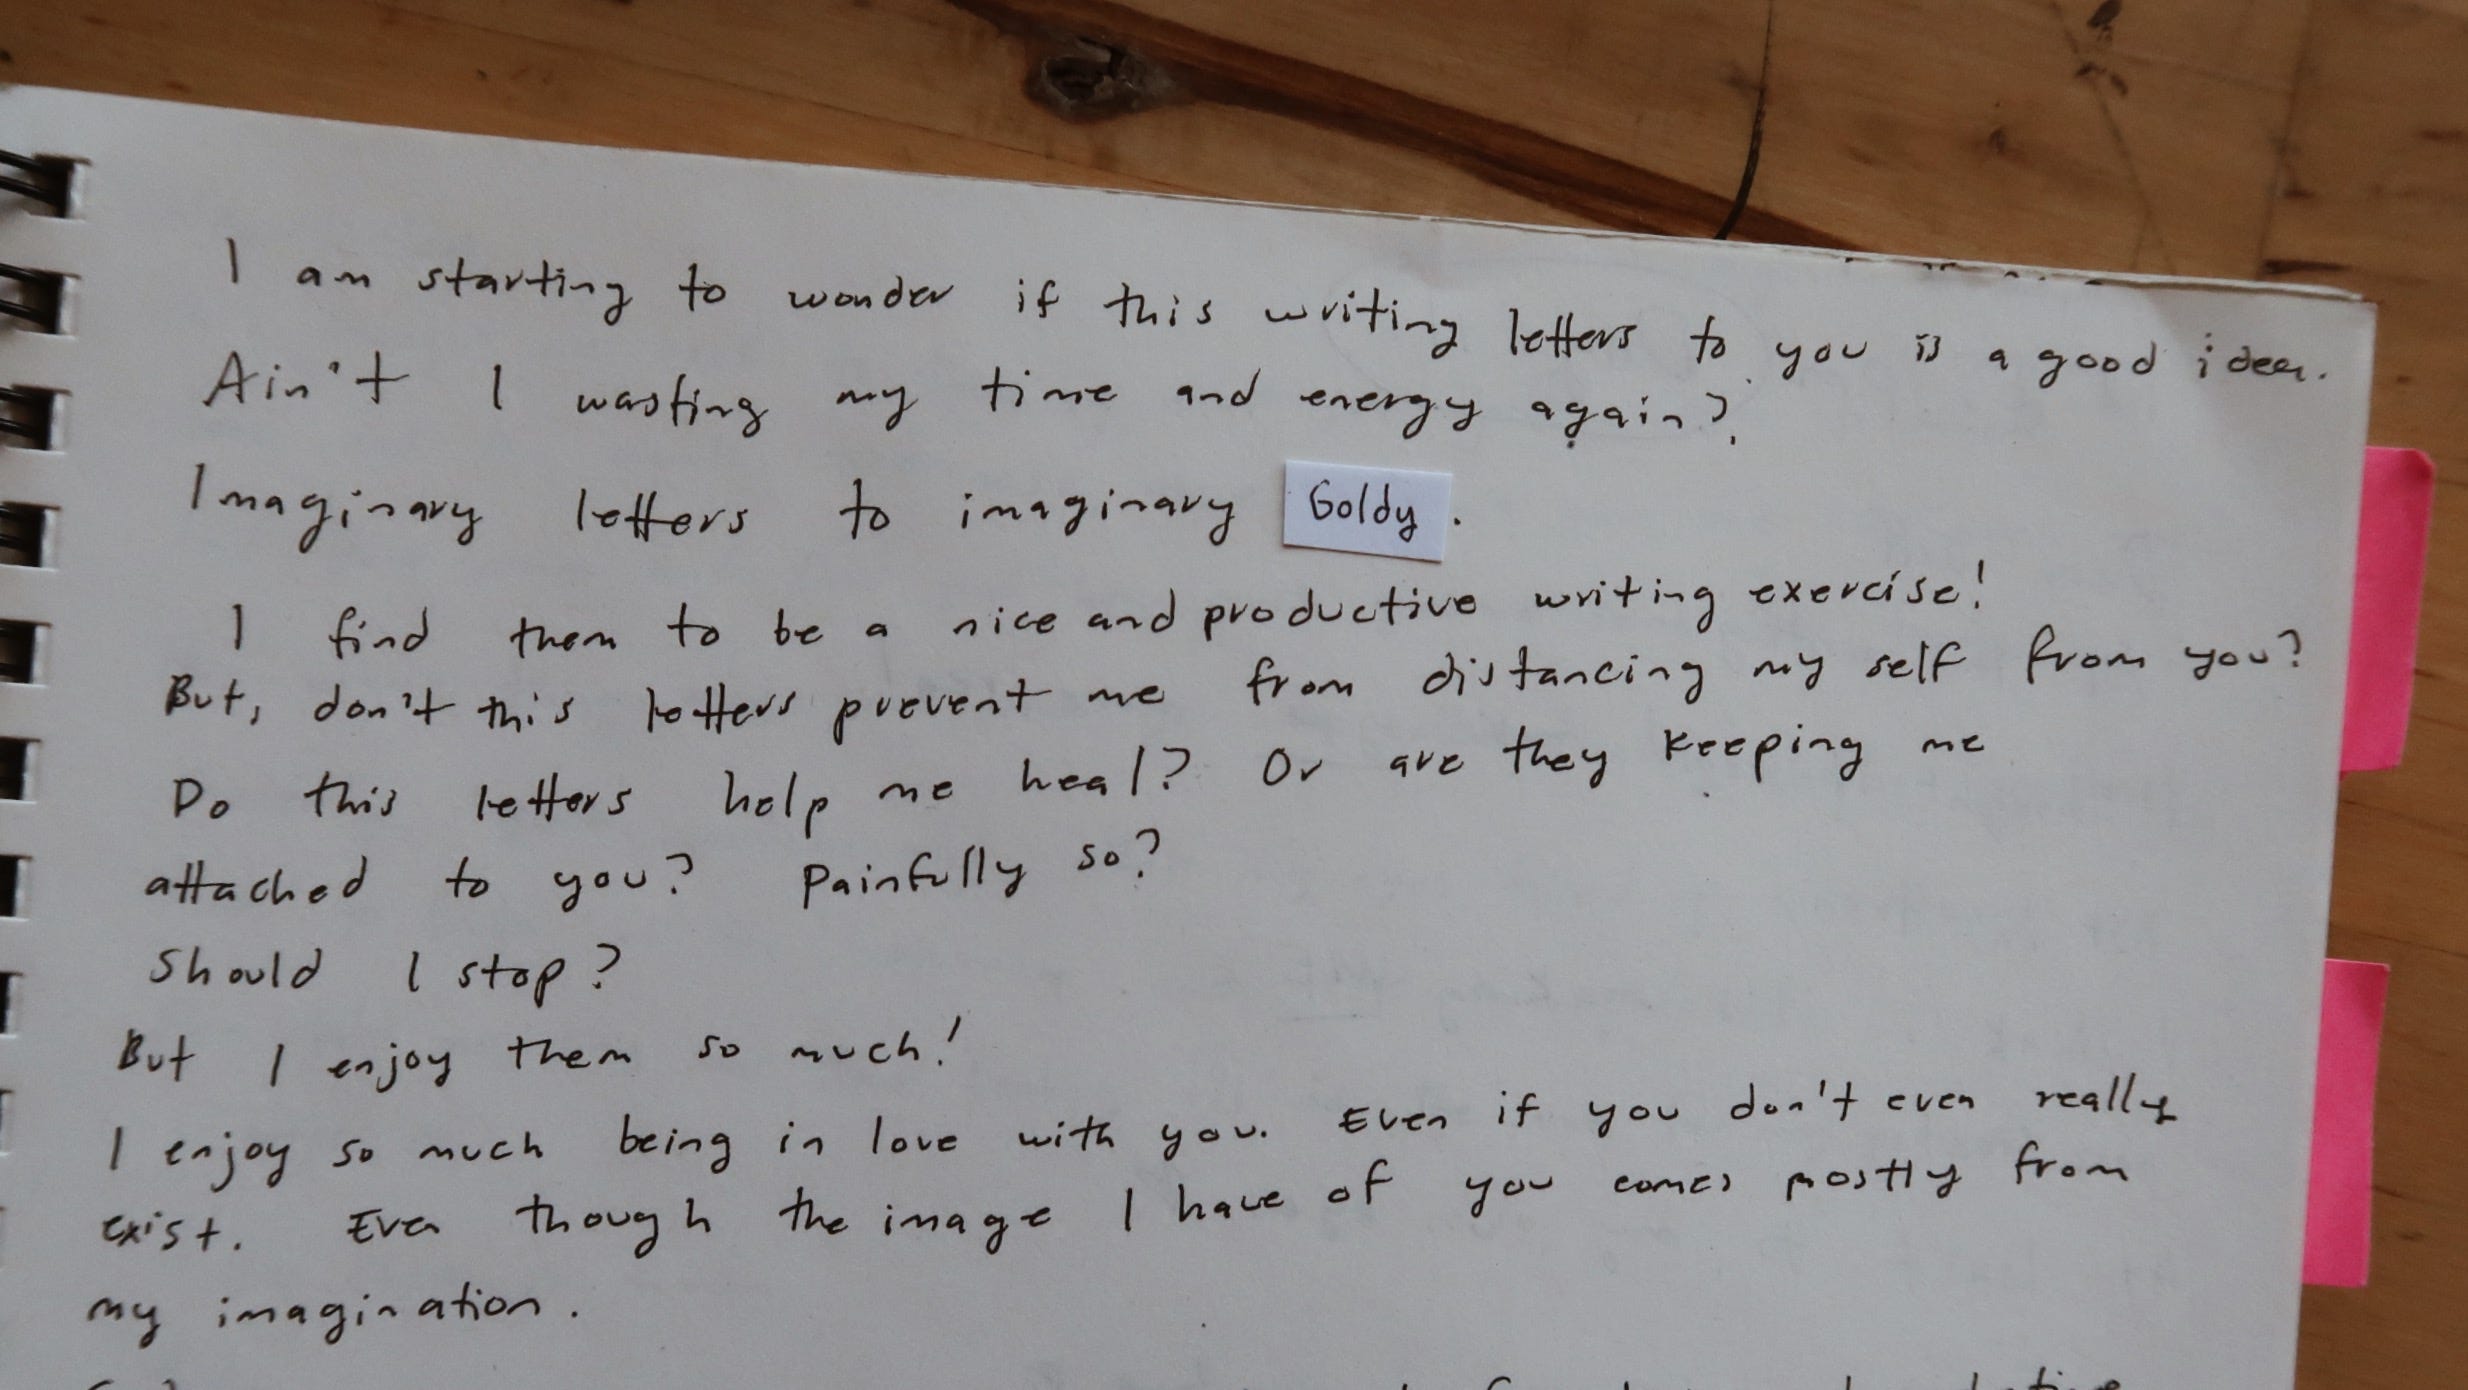 I am starting to wonder if this writing letters to you is a good idea.
Ain't I wasting my time and energy again?
Imaginary letters to imaginary Goldy.
I find them to be a nice and productive writing exercise!
But, don't this letters prevent me from distancing my self from you?
Do this letters help me heal? Or are they keeping me
attached to you? Painfully so?
Should I stop?
But I enjoy them so much!
I enjoy so much being in love with you. Even if you don't even really
exist. Even though the image I have of you comes mostly from
my imagination.